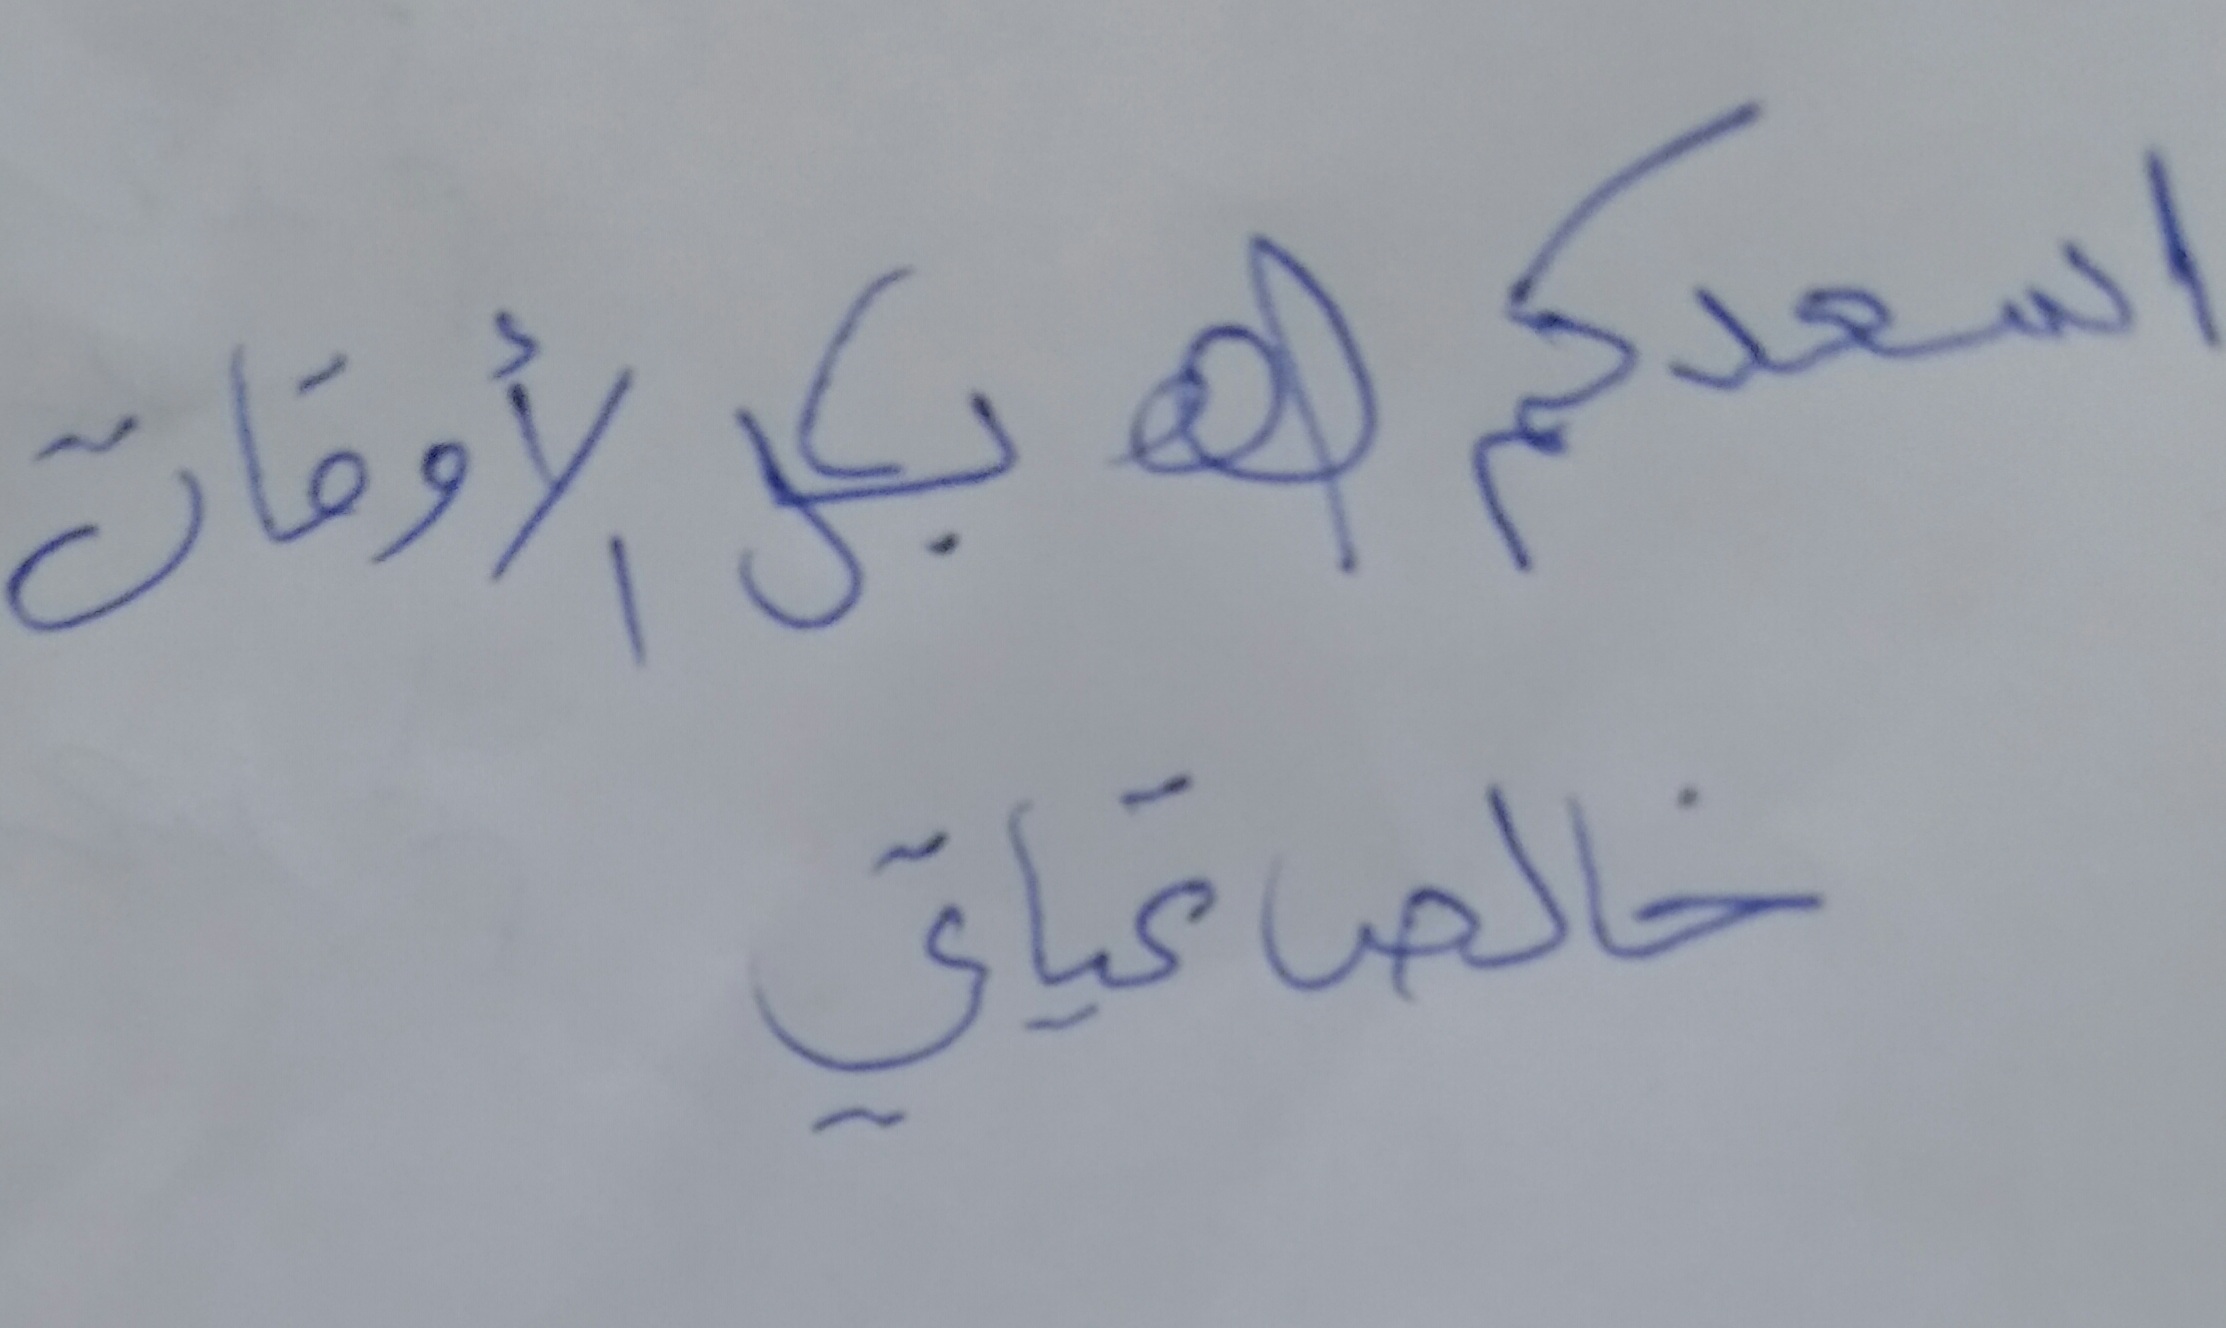 اسعدكم الله بكل الأوقات
خالص تحياتي